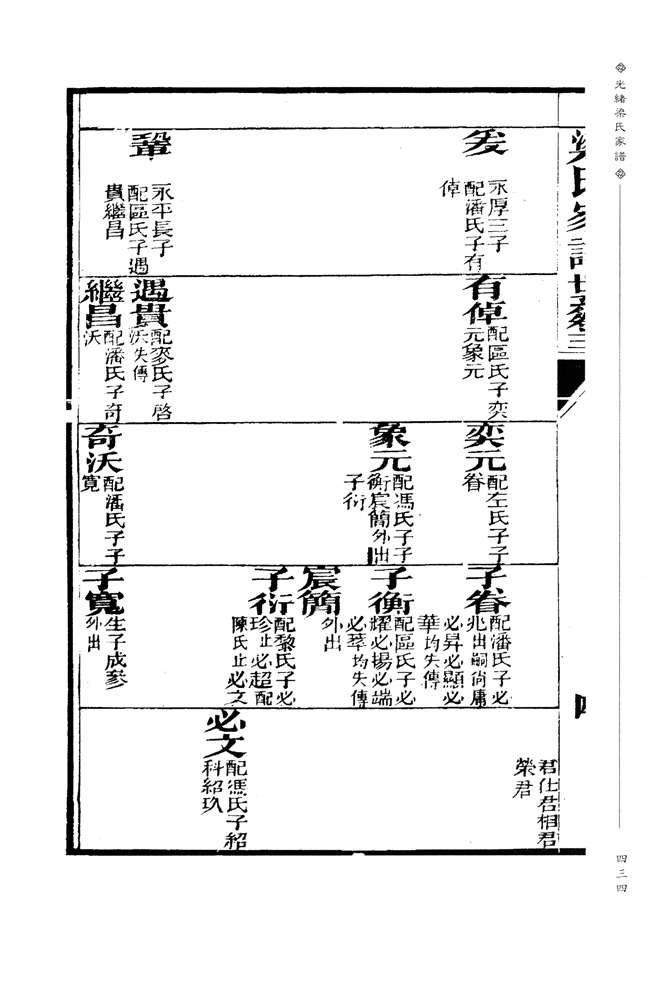 光緒梁氏家譜
四三四
梁氏家譜世系卷三
四
永厚三子
配潘氏子有
倬
鞏
永平長子
配區氏子遇
貴繼昌
有倬
配區氏子奕
元象元
遇貴
配麥氏子啓
洪失傳
繼昌
配潘氏子奇
沃
奕元
配左氏子子
眷
象元
配馮氏子子
衡宸簡外出
子衍
奇沃
配潘氏子子
寬
子眷
配潘氏子必
兆出嗣尙庸
必昇必顯必
華均失傳
子衡
配區氏子必
耀必揚必端
必萃均失傳
宸簡
外出
子衍
配黎氏子必
珍止必超配
陳氏止必文
子寬
生子成參
外出
君仕君相君
榮君
必文
配馮氏子紹
科紹玖